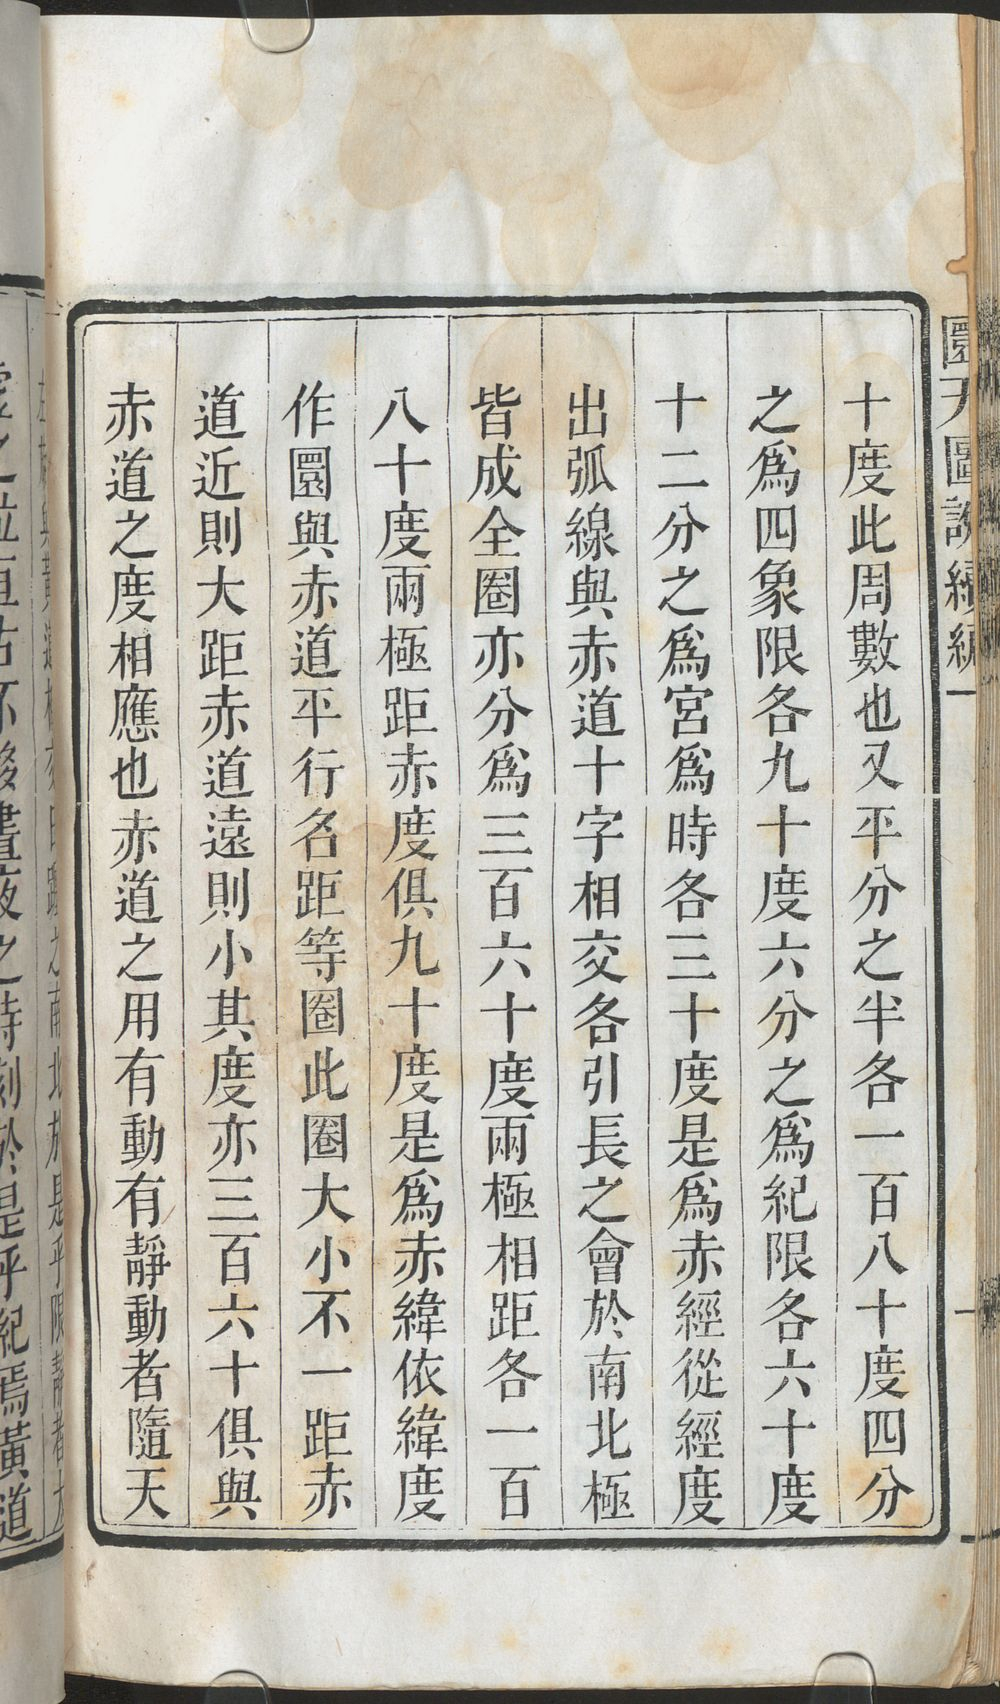 圜天圖說續編
十度此周數也又平分之半各一百八十度四分
之爲四象限各九十度六分之爲紀限各六十度
十二分之爲宮爲時各三十度是爲赤經從經度
出弧線與赤道十字相交各引長之會於南北極
皆成全圈亦分爲三百六十度兩極相距各一百
八十度兩極距赤度俱九十度是爲赤緯依緯度
作圜與赤道平行名距等圈此圈大小不一距赤
道近則大距赤道遠則小其度亦三百六十俱與
赤道之度相應也赤道之用有動有靜動者隨天
晝夜之時刻於是乎紀焉黃道